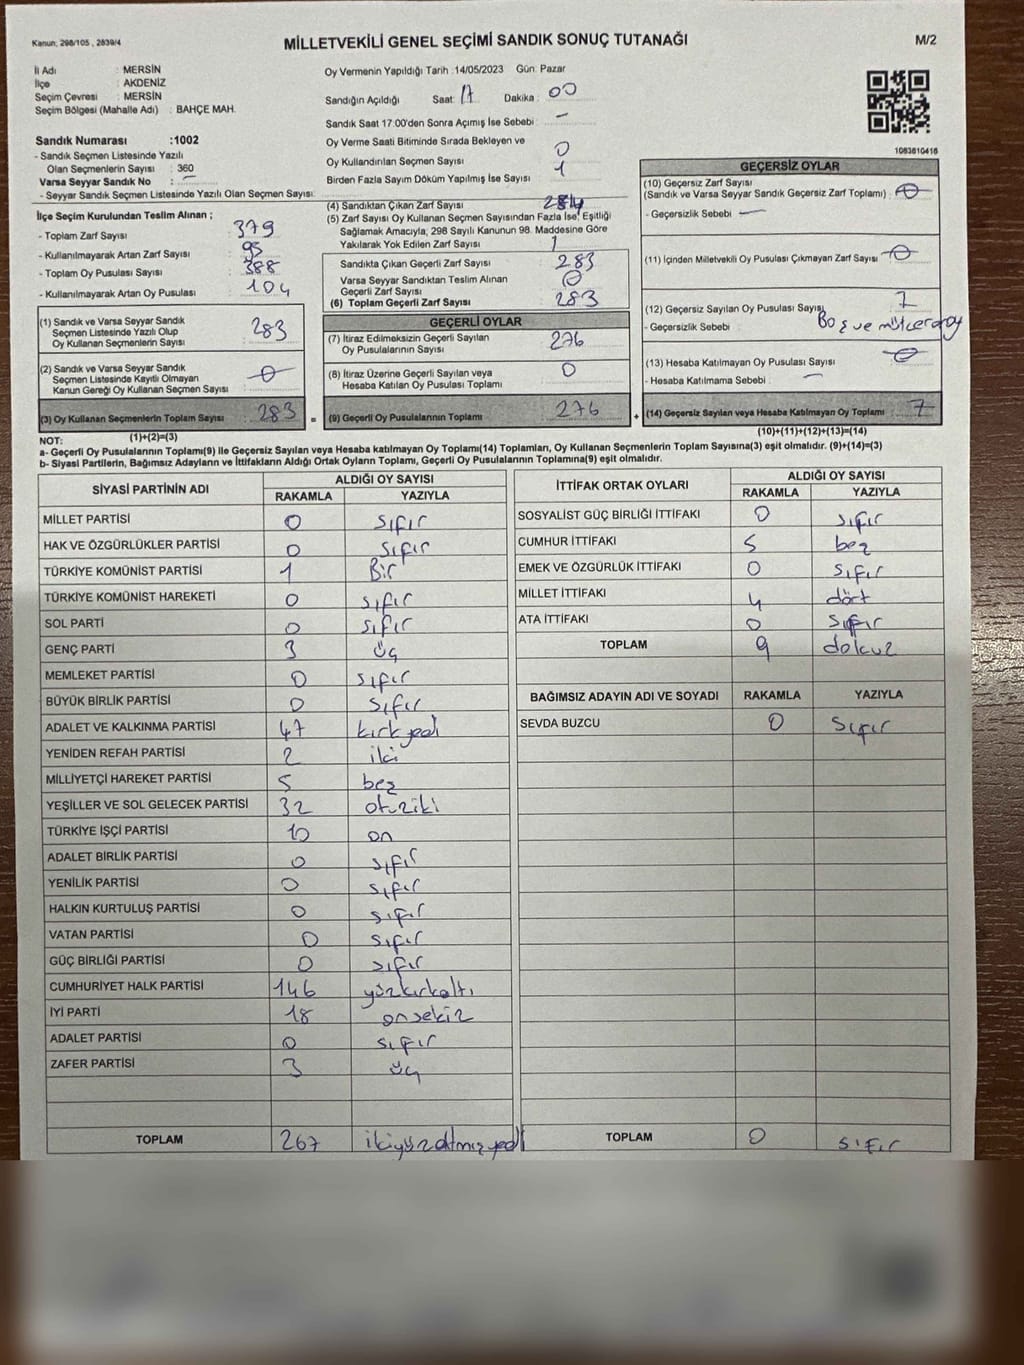 Kanun; 298/105 , 2839/4
MİLLETVEKİLİ GENEL SEÇİMİ SANDIK SONUÇ TUTANAĞI
M/2
İl Adı : MERSİN
İlçe : AKDENİZ
Seçim Çevresi : MERSİN
Seçim Bölgesi (Mahalle Adı) : BAHÇE MAH.
Sandık Numarası :1002
- Sandık Seçmen Listesinde Yazılı
Olan Seçmenlerin Sayısı : 360
Varsa Seyyar Sandık No : -
- Seyyar Sandık Seçmen Listesinde Yazılı Olan Seçmen Sayısı:
Oy Vermenin Yapıldığı Tarih :14/05/2023 Gün: Pazar
Sandığın Açıldığı Saat: 17 Dakika : 00
Sandık Saat 17:00'den Sonra Açılmış İse Sebebi : -
Oy Verme Saati Bitiminde Sırada Bekleyen ve
Oy Kullandırılan Seçmen Sayısı : 0
Birden Fazla Sayım Döküm Yapılmış İse Sayısı : 1
1083610416
İlçe Seçim Kurulundan Teslim Alınan ;
- Toplam Zarf Sayısı : 379
- Kullanılmayarak Artan Zarf Sayısı : 95
- Toplam Oy Pusulası Sayısı : 388
- Kullanılmayarak Artan Oy Pusulası : 104
(1) Sandık ve Varsa Seyyar Sandık
Seçmen Listesinde Yazılı Olup
Oy Kullanan Seçmenlerin Sayısı : 283
(2) Sandık ve Varsa Seyyar Sandık
Seçmen Listesinde Kayıtlı Olmayan
Kanun Gereği Oy Kullanan Seçmen Sayısı : 0
(3) Oy Kullanan Seçmenlerin Toplam Sayısı : 283 =
(1)+(2)=(3)
(4) Sandıktan Çıkan Zarf Sayısı : 284
(5) Zarf Sayısı Oy Kullanan Seçmen Sayısından Fazla İse, Eşitliği
Sağlamak Amacıyla; 298 Sayılı Kanunun 98. Maddesine Göre
Yakılarak Yok Edilen Zarf Sayısı : 1
Sandıkta Çıkan Geçerli Zarf Sayısı : 283
Varsa Seyyar Sandıktan Teslim Alınan
Geçerli Zarf Sayısı : 0
(6) Toplam Geçerli Zarf Sayısı : 283
GEÇERLİ OYLAR
(7) İtiraz Edilmeksizin Geçerli Sayılan
Oy Pusulalarının Sayısı : 276
(8) İtiraz Üzerine Geçerli Sayılan veya
Hesaba Katılan Oy Pusulası Toplamı : 0
(9) Geçerli Oy Pusulalarının Toplamı : 276 +
GEÇERSİZ OYLAR
(10) Geçersiz Zarf Sayısı
(Sandık ve Varsa Seyyar Sandık Geçersiz Zarf Toplamı) : 0
- Geçersizlik Sebebi : -
(11) İçinden Milletvekili Oy Pusulası Çıkmayan Zarf Sayısı : 0
(12) Geçersiz Sayılan Oy Pusulası Sayısı : 7
- Geçersizlik Sebebi : Boş ve
(13) Hesaba Katılmayan Oy Pusulası Sayısı : 0
- Hesaba Katılmama Sebebi : -
(14) Geçersiz Sayılan veya Hesaba Katılmayan Oy Toplamı : 7
(10)+(11)+(12)+(13)=(14)
NOT:
a- Geçerli Oy Pusulalarının Toplamı(9) ile Geçersiz Sayılan veya Hesaba katılmayan Oy Toplamı(14) Toplamları, Oy Kullanan Seçmenlerin Toplam Sayısına(3) eşit olmalıdır. (9)+(14)=(3)
b- Siyasi Partilerin, Bağımsız Adayların ve İttifakların Aldığı Ortak Oyların Toplamı, Geçerli Oy Pusulalarının Toplamına(9) eşit olmalıdır.
SİYASİ PARTİNİN ADI ALDIĞI OY SAYISI
RAKAMLA YAZIYLA
MİLLET PARTİSİ 0 sıfır
HAK VE ÖZGÜRLÜKLER PARTİSİ 0 sıfır
TÜRKİYE KOMÜNİST PARTİSİ 1 Bir
TÜRKİYE KOMÜNİST HAREKETİ 0 sıfır
SOL PARTİ 0 sıfır
GENÇ PARTİ 3 üç
MEMLEKET PARTİSİ 0 sıfır
BÜYÜK BİRLİK PARTİSİ 0 sıfır
ADALET VE KALKINMA PARTİSİ 47 kırkyedi
YENİDEN REFAH PARTİSİ 2 iki
MİLLİYETÇİ HAREKET PARTİSİ 5 beş
YEŞİLLER VE SOL GELECEK PARTİSİ 32 otuziki
TÜRKİYE İŞÇİ PARTİSİ 10 on
ADALET BİRLİK PARTİSİ 0 sıfır
YENİLİK PARTİSİ 0 sıfır
HALKIN KURTULUŞ PARTİSİ 0 sıfır
VATAN PARTİSİ 0 sıfır
GÜÇ BİRLİĞİ PARTİSİ 0 sıfır
CUMHURİYET HALK PARTİSİ 146 yüzkırkaltı
İYİ PARTİ 18 onsekiz
ADALET PARTİSİ 0 sıfır
ZAFER PARTİSİ 3 üç
TOPLAM 267 ikiyüzaltmışyedi
İTTİFAK ORTAK OYLARI ALDIĞI OY SAYISI
RAKAMLA YAZIYLA
SOSYALİST GÜÇ BİRLİĞİ İTTİFAKI 0 sıfır
CUMHUR İTTİFAKI 5 beş
EMEK VE ÖZGÜRLÜK İTTİFAKI 0 sıfır
MİLLET İTTİFAKI 4 dört
ATA İTTİFAKI 0 sıfır
TOPLAM 9 dokuz
BAĞIMSIZ ADAYIN ADI VE SOYADI RAKAMLA YAZIYLA
SEVDA BUZCU 0 sıfır
TOPLAM 0 sıfır